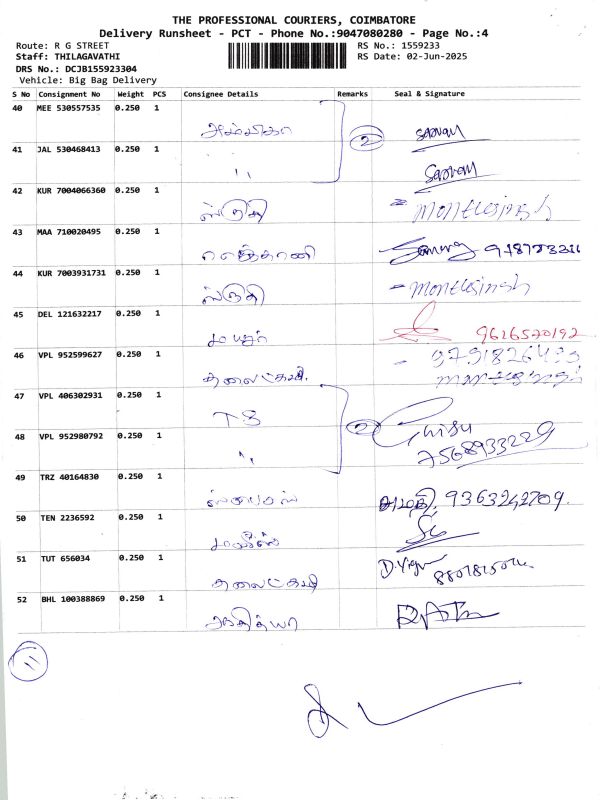 THE PROFESSIONAL COURIERS, COIMBATORE
Delivery Runsheet - PCT - Phone No.:9047080280 - Page No.:4
Route: R G STREET
RS No.: 1559233
Staff: THILAGAVATHI
RS Date: 02-Jun-2025
DRS No.: DCJB155923304
Vehicle: Big Bag Delivery
S No Consignment No Weight PCS Consignee Details Remarks Seal & Signature
40 MEE 530557535 0.250 1
அம்பிகா 2 Saravan
41 JAL 530468413 0.250 1
,, Saravan
42 KUR 7004066360 0.250 1
ஸ்ருதி
43 MAA 710020495 0.250 1
44 KUR 7003931731 0.250 1
ஸ்ருதி Montusingh
45 DEL 121632217 0.250 1
மயூர் 9626520192
46 VPL 952599627 0.250 1
47 VPL 406302931 0.250 1
TS 2
48 VPL 952980792 0.250 1
,, 7568933229
49 TRZ 40164830 0.250 1
அமுதி, 9363242709.
50 TEN 2236592 0.250 1
51 TUT 656034 0.250 1
52 BHL 100388869 0.250 1
ஆதித்யா
11